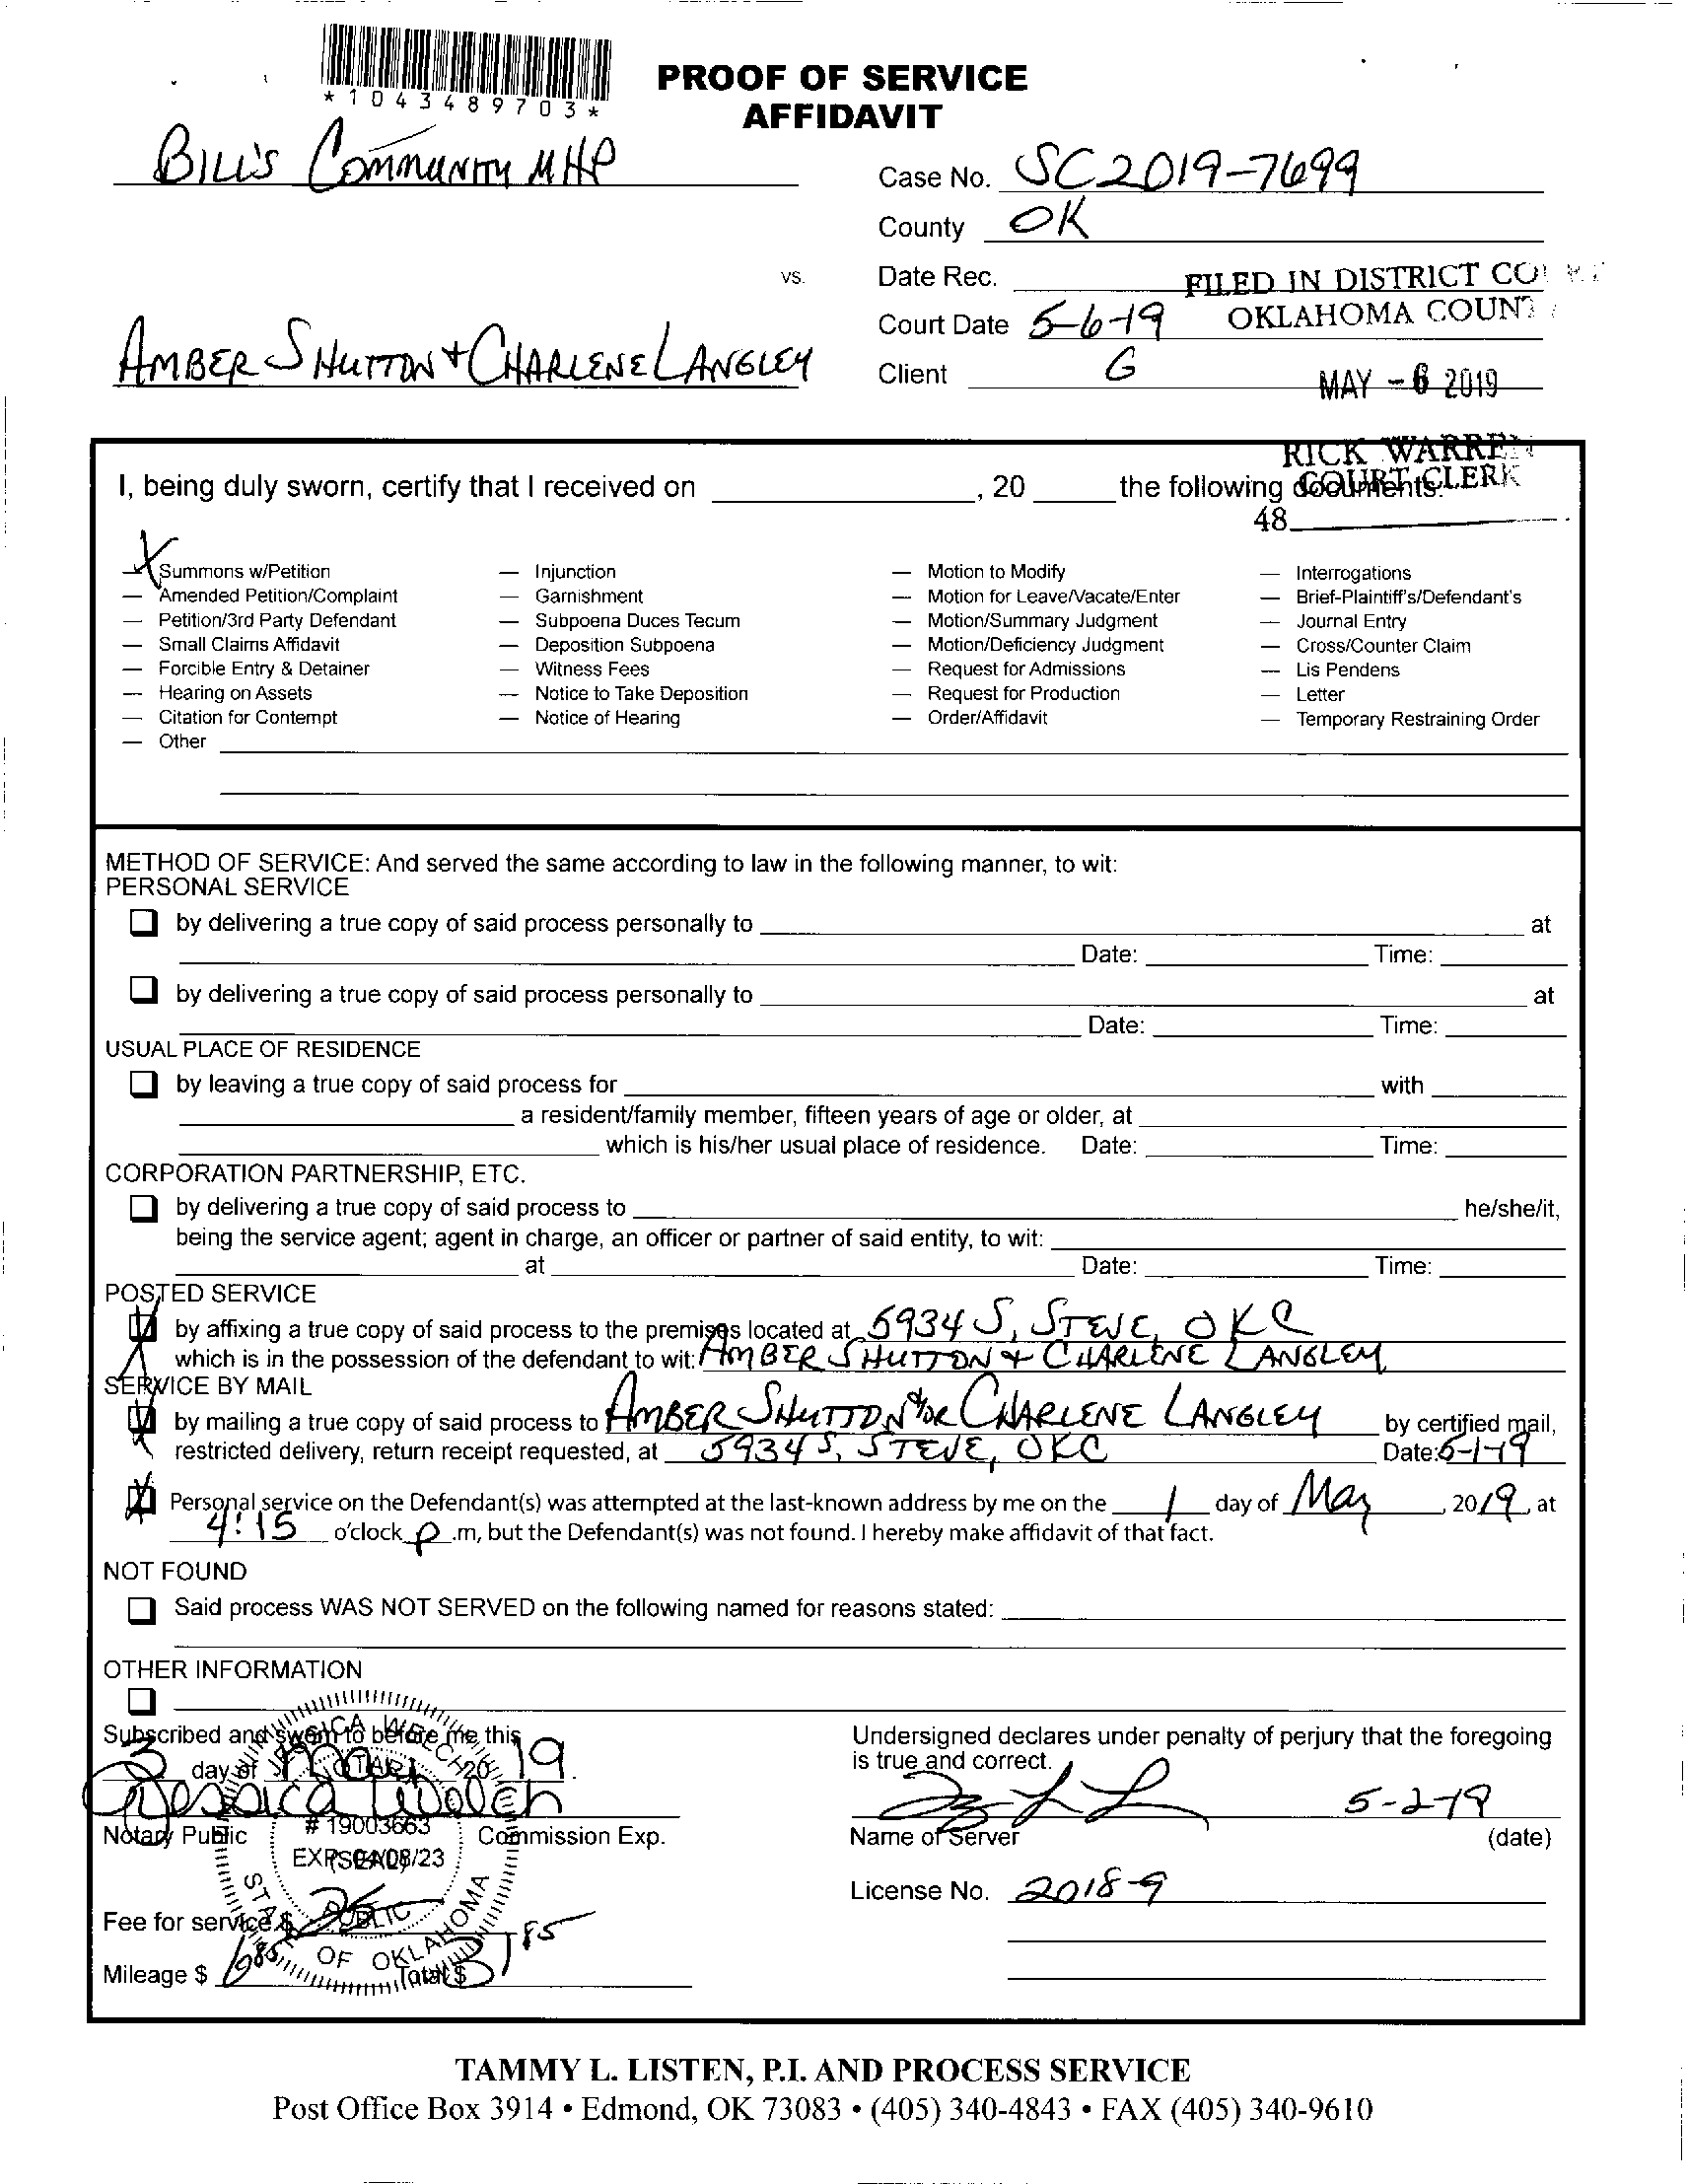 *1043489703*
PROOF OF SERVICE
AFFIDAVIT
BILL'S COMMUNITY MHP
Case No. SC2019-7699
County OK
vs.
Date Rec.
FILED IN DISTRICT CO
OKLAHOMA COUNT
Court Date 5-6-19
AMBER SHUTTON + CHARLENE LANGLEY
Client G
MAY - 6 2019
RICK WARREN
COURT CLERK
I, being duly sworn, certify that I received on , 20 the following documents:
48
X Summons w/Petition
Amended Petition/Complaint
Petition/3rd Party Defendant
Small Claims Affidavit
Forcible Entry & Detainer
Hearing on Assets
Citation for Contempt
Other
Injunction
Garnishment
Subpoena Duces Tecum
Deposition Subpoena
Witness Fees
Notice to Take Deposition
Notice of Hearing
Motion to Modify
Motion for Leave/Vacate/Enter
Motion/Summary Judgment
Motion/Deficiency Judgment
Request for Admissions
Request for Production
Order/Affidavit
Interrogations
Brief-Plaintiff's/Defendant's
Journal Entry
Cross/Counter Claim
Lis Pendens
Letter
Temporary Restraining Order
METHOD OF SERVICE: And served the same according to law in the following manner, to wit:
PERSONAL SERVICE
by delivering a true copy of said process personally to at
Date: Time:
by delivering a true copy of said process personally to at
Date: Time:
USUAL PLACE OF RESIDENCE
by leaving a true copy of said process for with
a resident/family member, fifteen years of age or older, at
which is his/her usual place of residence. Date: Time:
CORPORATION PARTNERSHIP, ETC.
by delivering a true copy of said process to he/she/it,
being the service agent; agent in charge, an officer or partner of said entity, to wit:
at Date: Time:
POSTED SERVICE
by affixing a true copy of said process to the premises located at 5934 S. STEVE, OKC
which is in the possession of the defendant to wit: AMBER SHUTTON + CHARLENE LANGLEY
SERVICE BY MAIL
by mailing a true copy of said process to AMBER SHUTTON &/OR CHARLENE LANGLEY by certified mail,
restricted delivery, return receipt requested, at 5934 S. STEVE, OKC Date: 5-1-19
Personal service on the Defendant(s) was attempted at the last-known address by me on the 1 day of May, 2019, at
4:15 o'clock p.m, but the Defendant(s) was not found. I hereby make affidavit of that fact.
NOT FOUND
Said process WAS NOT SERVED on the following named for reasons stated:
OTHER INFORMATION
Subscribed and sworn to before me this
3 day of May 20 19.
Jessica Welch
Notary Public (SEAL) Commission Exp.
JESSICA WELCH
NOTARY PUBLIC
# 19003663
EXP. 04/08/23
STATE OF OKLAHOMA
Fee for service $ 25
Mileage $ 6.85 Total $ 31.85
Undersigned declares under penalty of perjury that the foregoing
is true and correct.
5-2-19
Name of Server (date)
License No. 2018-9
TAMMY L. LISTEN, P.I. AND PROCESS SERVICE
Post Office Box 3914 • Edmond, OK 73083 • (405) 340-4843 • FAX (405) 340-9610